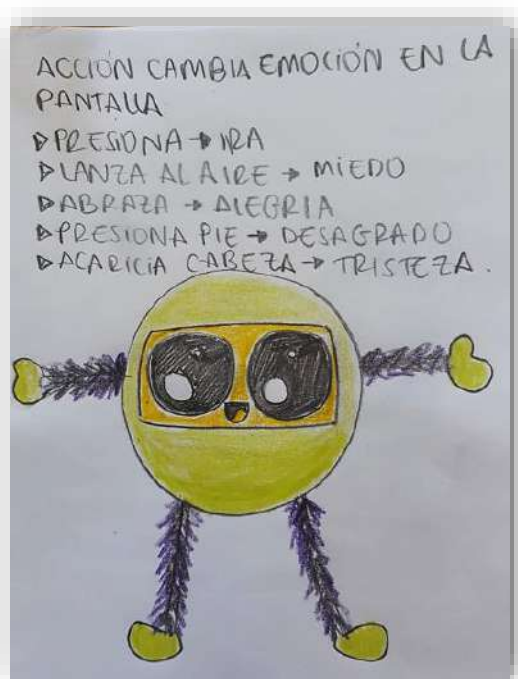 ACCIÓN CAMBIA EMOCIÓN EN LA
PANTALLA
▷ PRESIONA → IRA
▷ LANZA AL AIRE → MIEDO
▷ ABRAZA → ALEGRIA
▷ PRESIONA PIE → DESAGRADO
▷ ACARICIA CABEZA → TRISTEZA.